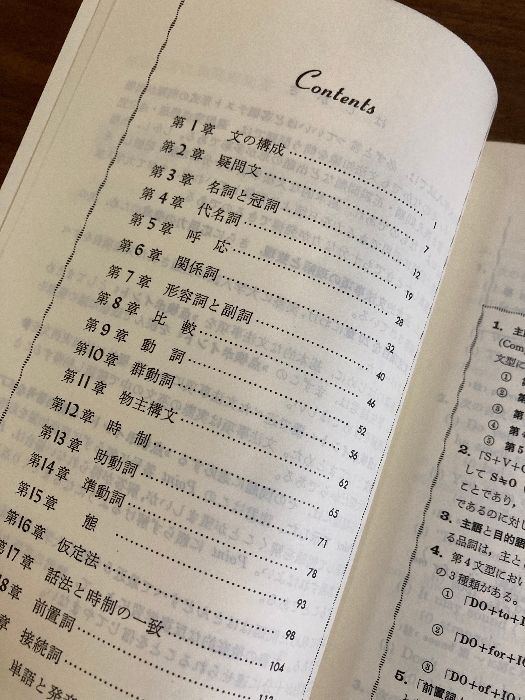 Contents
第1章 文の構成 1
第2章 疑問文 7
第3章 名詞と冠詞 12
第4章 代名詞 19
第5章 呼 応 28
第6章 関係詞 32
第7章 形容詞と副詞 40
第8章 比 較 46
第9章 動 詞 52
第10章 群動詞 56
第11章 物主構文 62
第12章 時 制 65
第13章 助動詞 71
第14章 準動詞 78
第15章 態 93
第16章 仮定法 98
第17章 話法と時制の一致 104
8章 前置詞
章 接続詞
単語と発
1. 主
(Com
文型に
① 第
② 第
③ 第
④ 第
⑤ 第5
2. 「S+V+
して S≠O
ことであり,
であるのに対
3. 主語と目的語
る品詞は,主と
4. 第4文型にお
の3種類がある。
① 「DO+to+I
② 「DO+for+IO
③ 「DO+of+IO
5. 「前置詞+